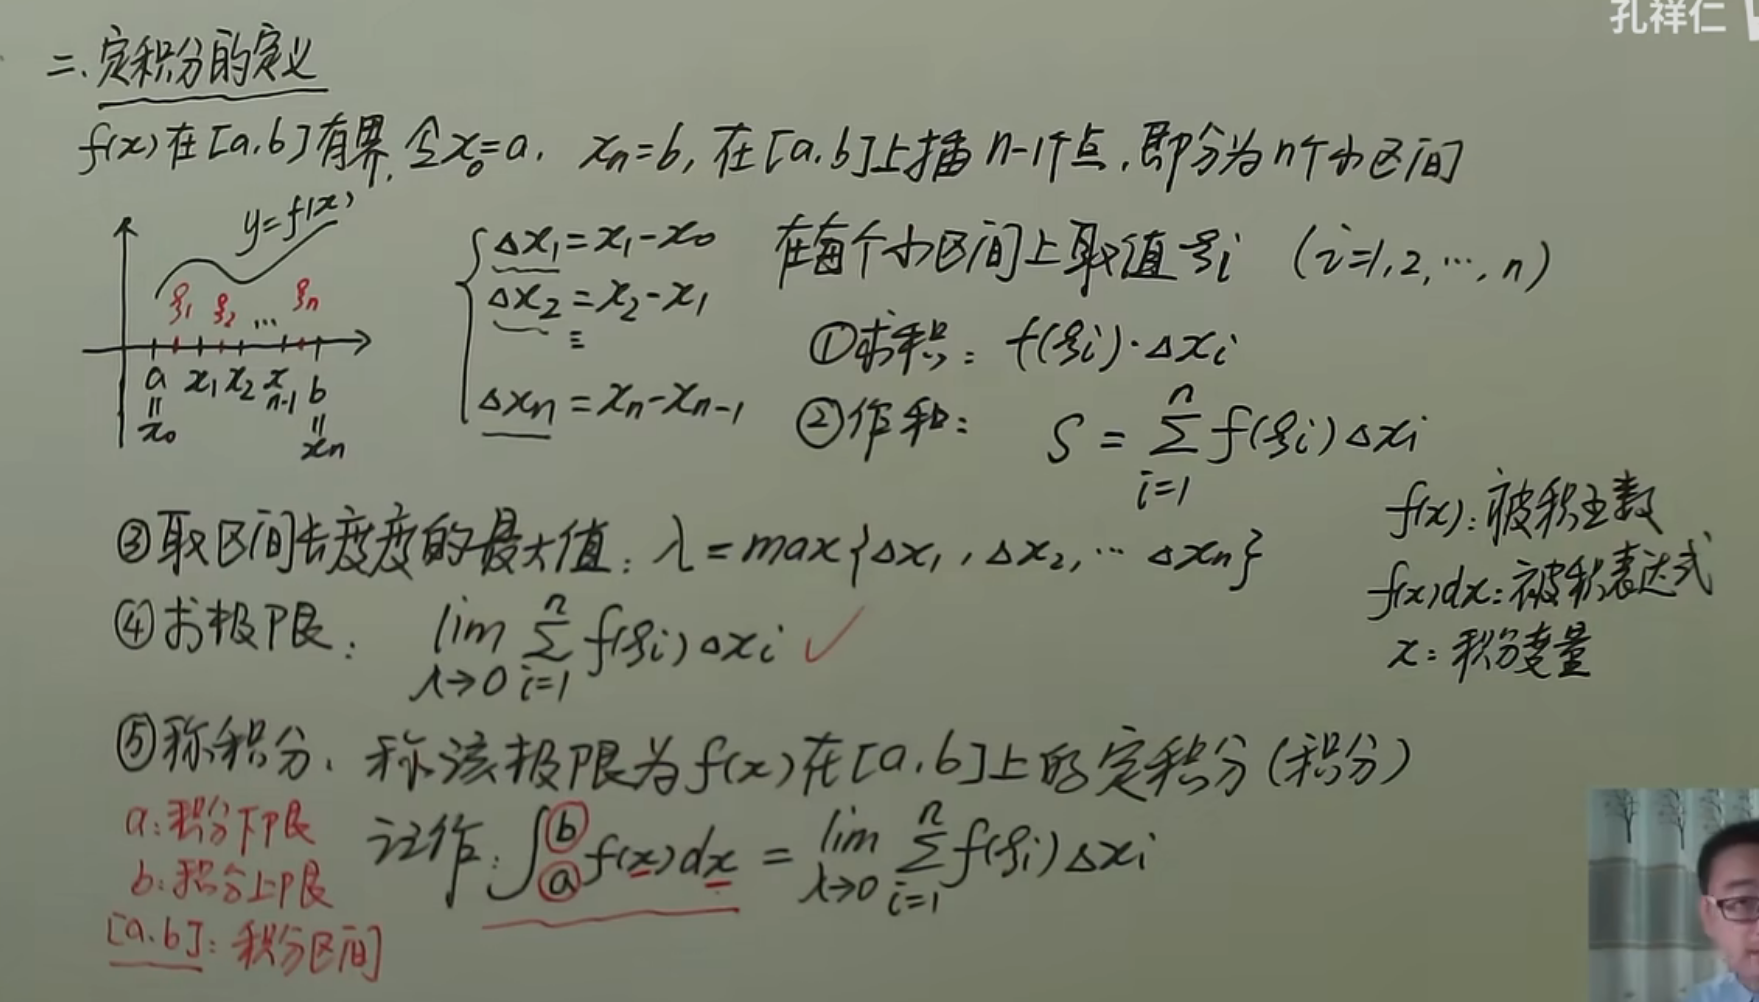 孔祥仁
二、定积分的定义
f(x)在[a,b]有界,令x₀=a, xₙ=b, 在[a,b]上插n-1个点,即分为n个小区间
y=f(x)
ξ₁ ξ₂ … ξₙ
a x₁ x₂ xₙ₋₁ b
x₀ xₙ
Δx₁=x₁-x₀
Δx₂=x₂-x₁
Δxₙ=xₙ-xₙ₋₁
在每个小区间上取值ξi (i=1,2,…,n)
①求积: f(ξi)·Δxi
②作和: S=∑ⁿᵢ₌₁ f(ξi)Δxi
③取区间长度度的最大值: λ=max{Δx₁,Δx₂,…Δxₙ}
④求极限: lim λ→0 ∑ⁿᵢ₌₁ f(ξi)Δxi ✓
f(x):被积函数
f(x)dx:被积表达式
x:积分变量
⑤称积分、称该极限为f(x)在[a,b]上的定积分(积分)
记作: ∫ᵇₐ f(x)dx = lim λ→0 ∑ⁿᵢ₌₁ f(ξi)Δxi
a:积分下限
b:积分上限
[a,b]:积分区间